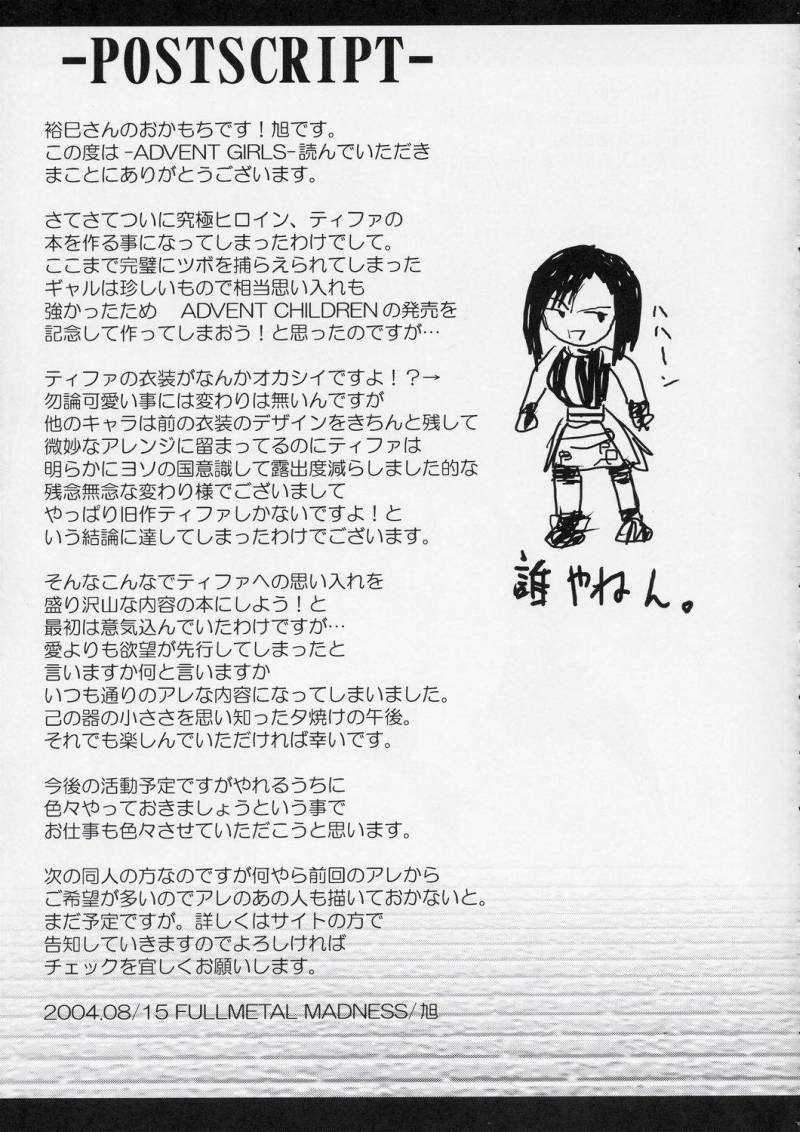 -POSTSCRIPT-
裕巳さんのおかもちです！旭です。
この度は-ADVENT GIRLS-読んでいただき
まことにありがとうございます。
さてさてついに究極ヒロイン、ティファの
本を作る事になってしまったわけでして。
ここまで完璧にツボを捕らえられてしまった
ギャルは珍しいもので相当思い入れも
強かったため　ADVENT CHILDRENの発売を
記念して作ってしまおう！と思ったのですが…
ティファの衣装がなんかオカシイですよ！？→
勿論可愛い事には変わりは無いんですが
他のキャラは前の衣装のデザインをきちんと残して
微妙なアレンジに留まってるのにティファは
明らかにヨソの国意識して露出度減らしました的な
残念無念な変わり様でございまして
やっぱり旧作ティファしかないですよ！と
いう結論に達してしまったわけでございます。
ハハーン
誰やねん。
そんなこんなでティファへの思い入れを
盛り沢山な内容の本にしよう！と
最初は意気込んでいたわけですが…
愛よりも欲望が先行してしまったと
言いますか何と言いますか
いつも通りのアレな内容になってしまいました。
己の器の小ささを思い知った夕焼けの午後。
それでも楽しんでいただければ幸いです。
今後の活動予定ですがやれるうちに
色々やっておきましょうという事で
お仕事も色々させていただこうと思います。
次の同人の方なのですが何やら前回のアレから
ご希望が多いのでアレのあの人も描いておかないと。
まだ予定ですが。詳しくはサイトの方で
告知していきますのでよろしければ
チェックを宜しくお願いします。
2004.08/15 FULLMETAL MADNESS/旭